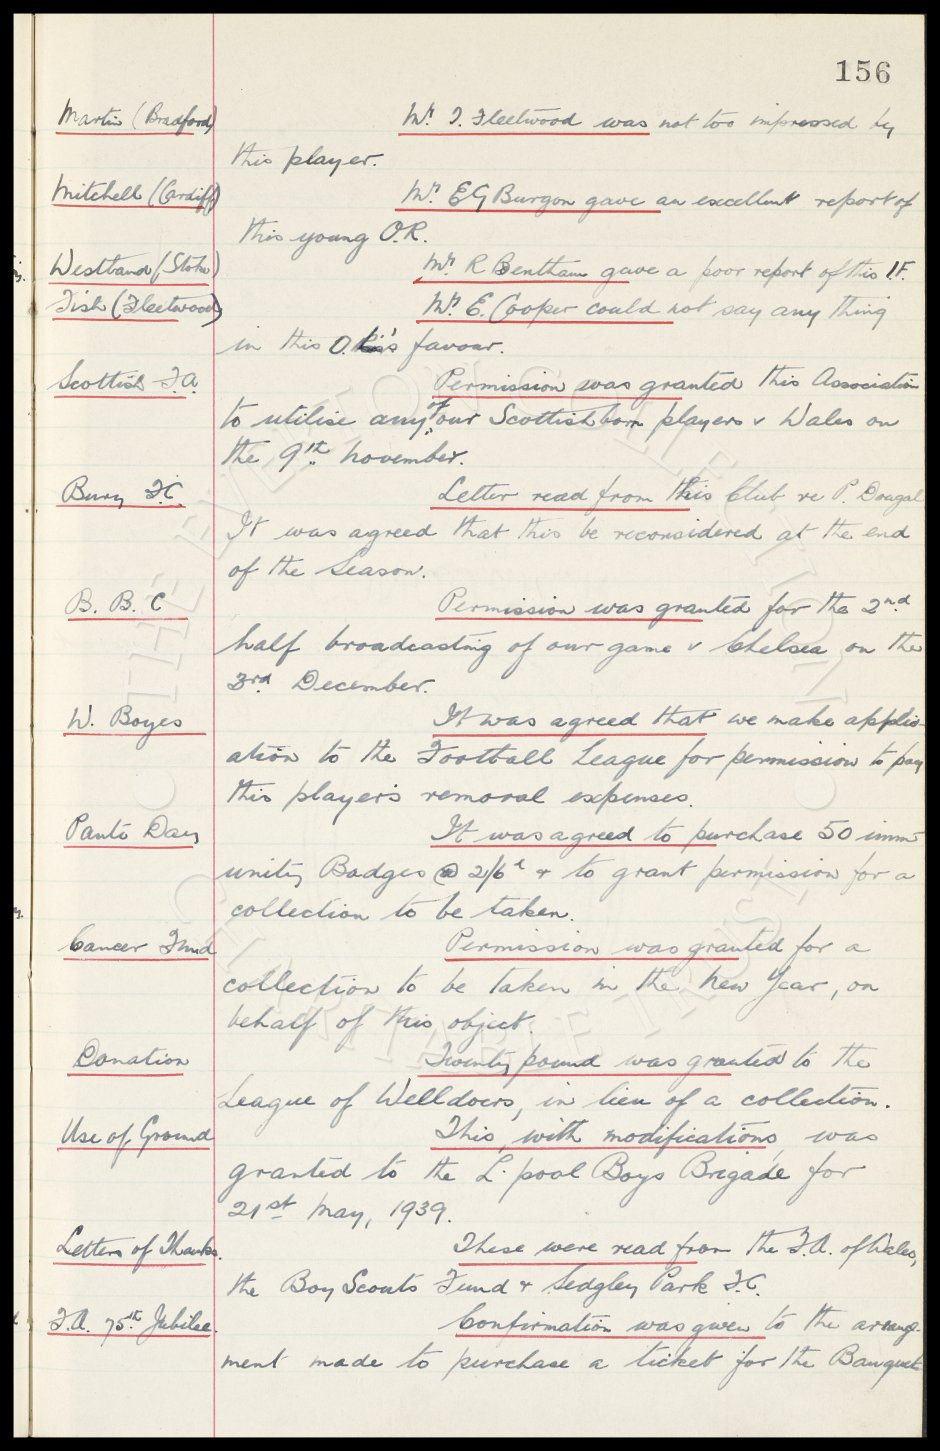 156
Martin (Bradford) Mr. T. Fleetwood was not too impressed by
this player.
Mitchell (Cardiff) Mr. E G Burgon gave an excellent report of
this young O.R.
Westland (Stoke) Mr. R Bentham gave a poor report of this I.F.
Fish (Fleetwood) Mr. E. Cooper could not say any thing
in this O. R's favour.
Scottish F.A. Permission was granted this Association
to utilise any of our Scottish born players v Wales on
the 9th. November.
Bury F.C. Letter read from this Club re P. Dougal
It was agreed that this be reconsidered at the end
of the Season.
B. B. C Permission was granted for the 2nd
half broadcasting of our game v Chelsea on the
3rd December.
W. Boyes It was agreed that we make applic-
ation to the Football League for permission to pay
this player's removal expenses.
Panto Day It was agreed to purchase 50 imm-
unity Badges @ 2/6d & to grant permission for a
collection to be taken.
Cancer Fund Permission was granted for a
collection to be taken in the New Year, on
behalf of this object.
Donation Twenty pound was granted to the
League of Welldoers, in lieu of a collection.
Use of Ground This, with modifications, was
granted to the L'pool Boys Brigade for
21st May, 1939.
Letters of Thanks. These were read from the F.A. of Wales,
the Boy Scouts Fund & Sedgley Park F.C.
F.A. 75th Jubilee. Confirmation was given to the arrange-
ment made to purchase a ticket for the Banquet
THE EVERTON COLLECTION
CHARITABLE TRUST